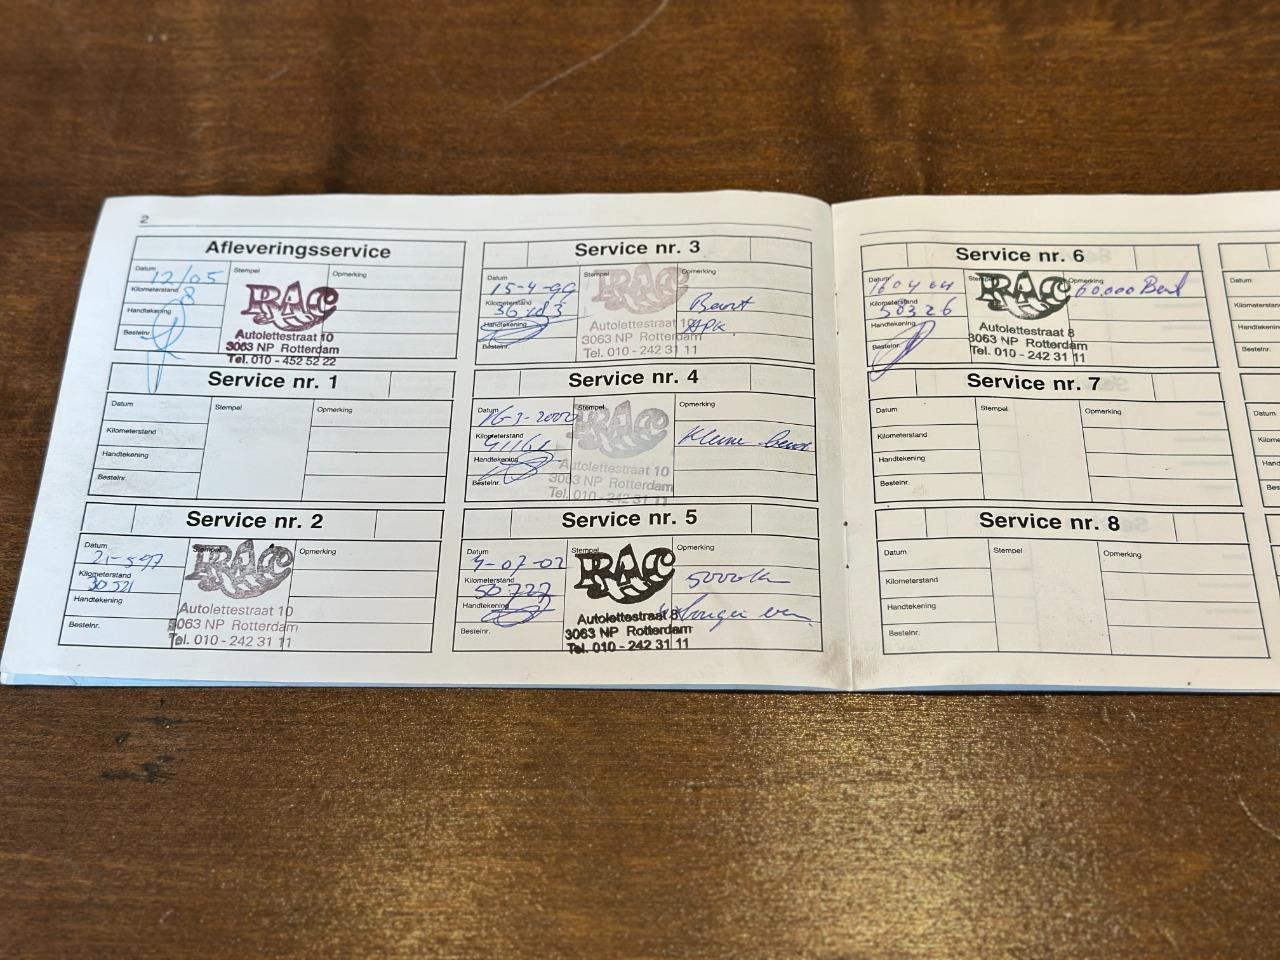 2
Afleveringsservice
Datum 12/05 Stempel Opmerking
Kilometerstand 8
Handtekening
Bestelnr.
RAC
Autolettestraat 10
3063 NP Rotterdam
Tel. 010 - 452 52 22
Service nr. 1
Datum Stempel Opmerking
Kilometerstand
Handtekening
Bestelnr.
Service nr. 2
Datum 21-5-97 Stempel Opmerking
Kilometerstand 30521
Handtekening
Bestelnr.
RAC
Autolettestraat 10
3063 NP Rotterdam
Tel. 010 - 242 31 11
Service nr. 3
Datum 15-4-99 Stempel Opmerking
Kilometerstand
Handtekening
Bestelnr.
RAC
Autolettestraat 10
3063 NP Rotterdam
Tel. 010 - 242 31 11
Beurt
APK
Service nr. 4
Datum 16-3-2000 Stempel Opmerking
Kilometerstand
Handtekening
Bestelnr.
RAC
Autolettestraat 10
3063 NP Rotterdam
Tel. 010 - 242 31 11
Kleine beurt
Service nr. 5
Datum Stempel Opmerking
Kilometerstand 50727
Handtekening
Bestelnr.
RAC
Autolettestraat 8
3063 NP Rotterdam
Tel. 010 - 242 31 11
Service nr. 6
Datum 160404 Stempel Opmerking 60.000 Beurt
Kilometerstand 50326
Handtekening
Bestelnr.
RAC
Autolettestraat 8
3063 NP Rotterdam
Tel. 010 - 242 31 11
Service nr. 7
Datum Stempel Opmerking
Kilometerstand
Handtekening
Bestelnr.
Service nr. 8
Datum Stempel Opmerking
Kilometerstand
Handtekening
Bestelnr.
Datum
Kilometerstand